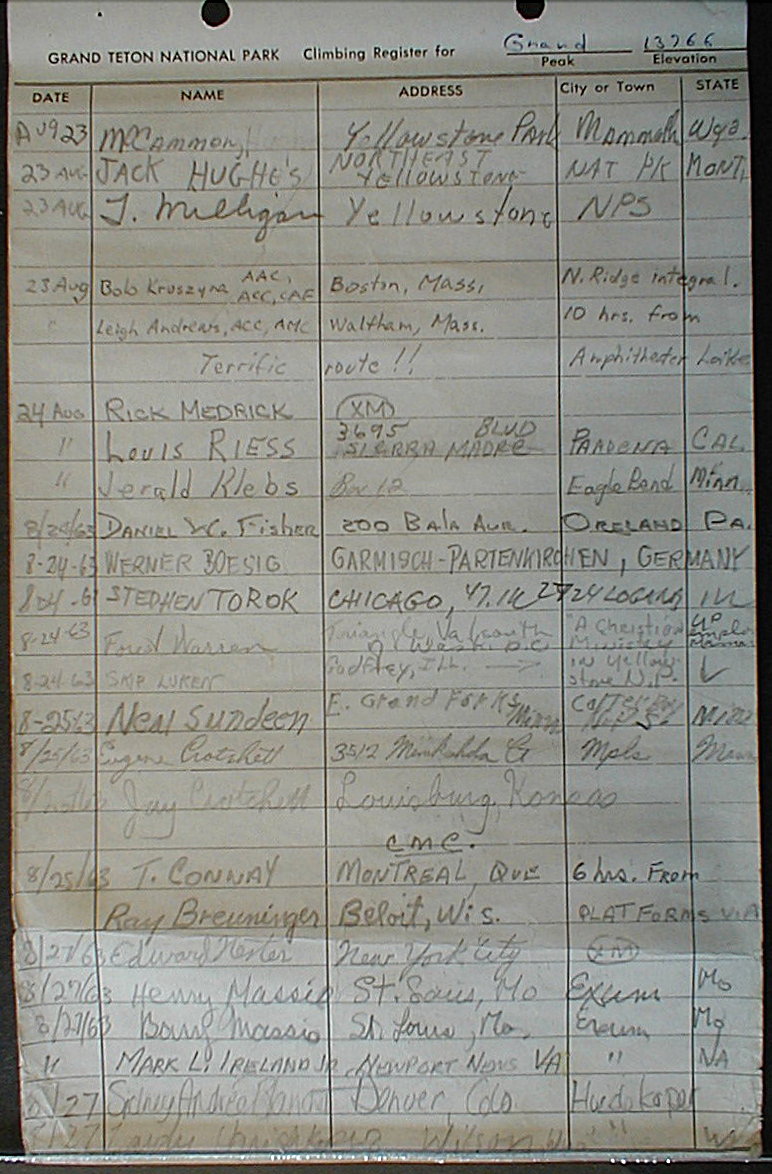 GRAND TETON NATIONAL PARK Climbing Register for Grand 13766
Peak Elevation
DATE NAME ADDRESS City or Town STATE
Aug 23 McCammon, Yellowstone Park Mammoth Wyo.
23 AUG JACK HUGHE'S NORTHEAST YELLOWSTONE NAT PK MONT,
23 AUG J. Milligan Yellowstone NPS
23 Aug Bob Kruszyna AAC, ACC, Boston, Mass, N. Ridge integral.
" Leigh Andrews, ACC, AMC Waltham, Mass. 10 hrs. from
Terrific route !! Amphitheater Lake
24 Aug RICK MEDRICK XM
" LOUIS RIESS 3695 SIERRA MADRE BLVD CAL.
" Jerald Klebs Box 12 Eagle Bend Minn.
8/24/63 DANIEL W. FISHER 200 BALA AVE. ORELAND PA.
8-24-63 WERNER BOESIG GARMISCH-PARTENKIRCHEN, GERMANY
STEPHEN TOROK CHICAGO,
8-24-63 Forest Warren Triangle, Va. south of Wash. D.C. "A Christian Ministry
8-24-63 SKIP LUKEN Godfrey, ILL. in Yellowstone N.P.
8-25 63 Neal Sundeen E. Grand Forks Minn
8/25/63 Eugene Crotchett 3512 Mpls
Jay Crotchett Louisburg, Kansas
CMC.
8/25/63 T. CONWAY MONTREAL, QUE 6 hrs. FROM
Ray Breuninger Beloit, Wis. PLATFORMS VIA
8/27/63 Edward Nester New York City XM
8/27/63 Henry Massie St. Louis, Mo Exum Mo
8/27/63 Barry Massie St. Louis, Mo. Exum Mo
" MARK L. IRELAND JR. NEWPORT NEWS VA "
8/27 Denver, Colo
Wilson